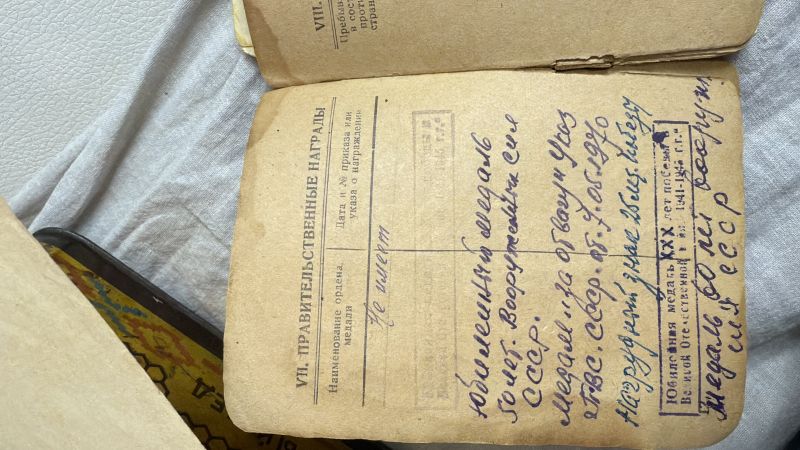 VIII.
Пребыв
в сост
прот
стран
VII. ПРАВИТЕЛЬСТВЕННЫЕ НАГРАДЫ
Наименование ордена, медали
Дата и № приказа или указа о награждении
Не имеет
Юбилейный медаль
50 лет. Вооружённых сил
СССР.
медаль „за отвагу" Указ
ПВС. СССР. от. 7.05.1970
Нагрудный знак 25 лет победы
Юбилейная медаль XXX лет победы в
Великой Отечественной войне 1941-1945 г.г."
медаль 60 лет вооружн
сил СССР